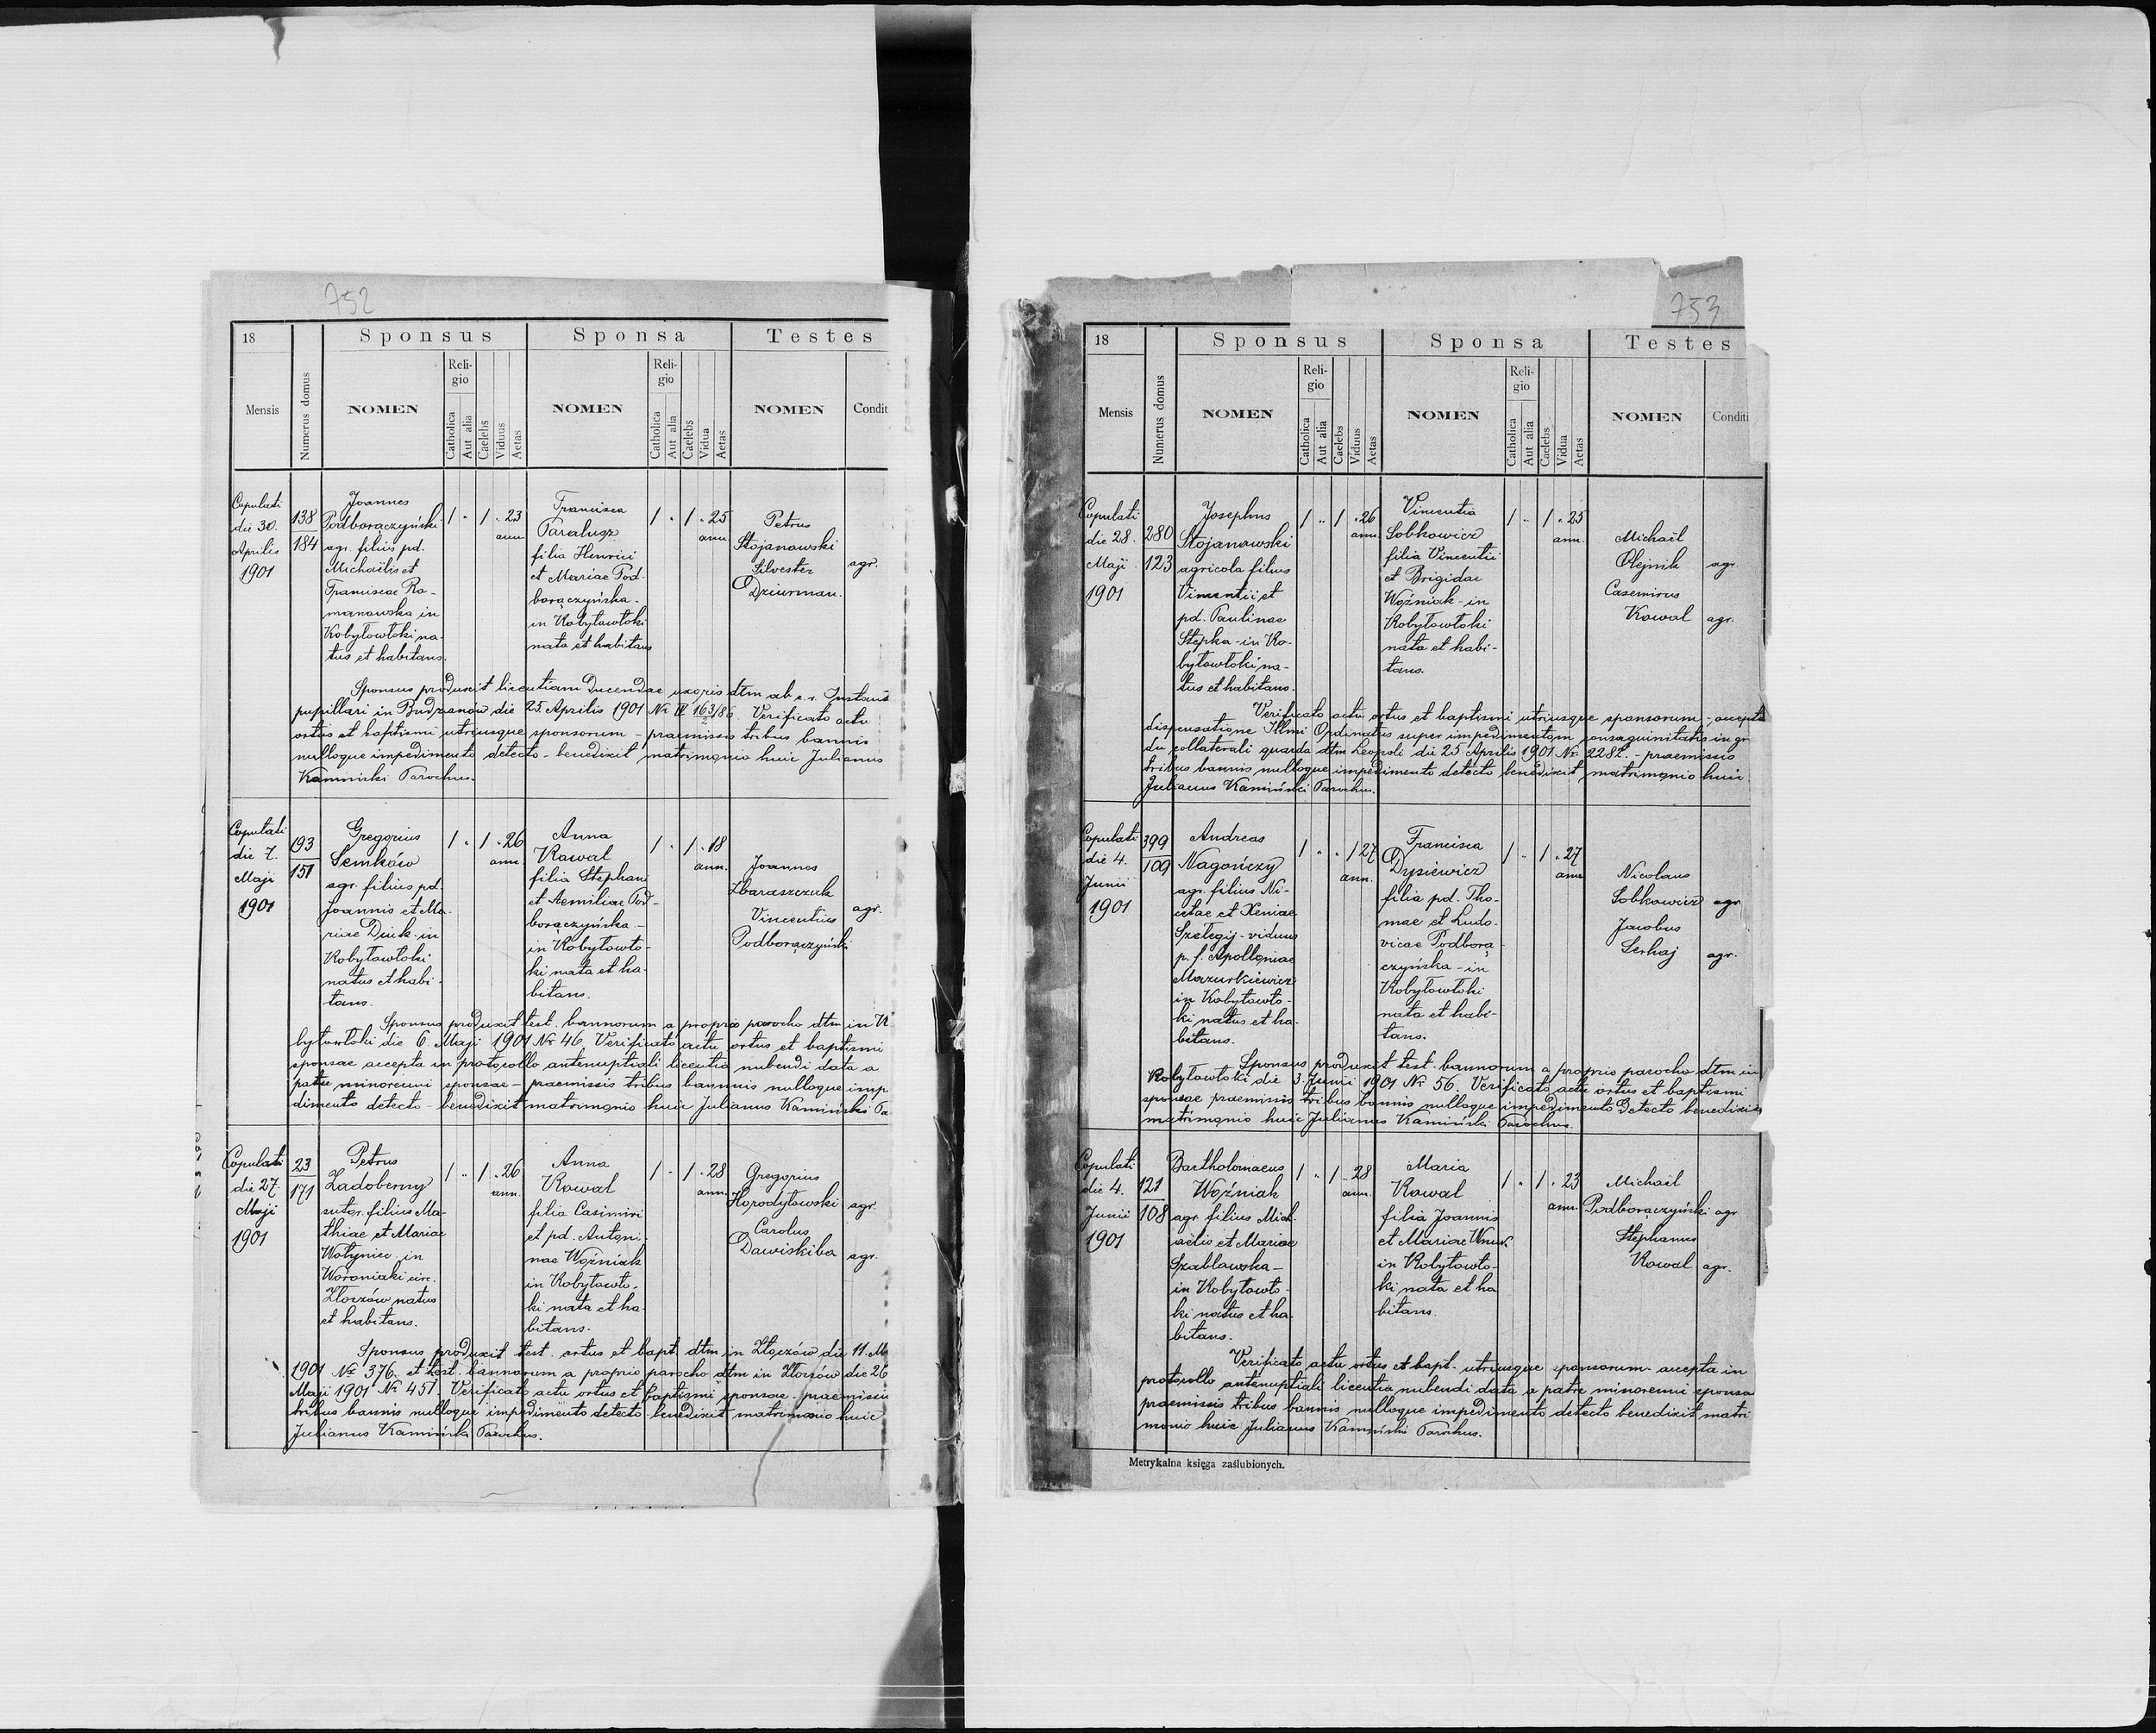 752
18
Sponsus
Sponsa
Testes
Mensis
Numerus domus
NOMEN
Religio
Catholica
Aut alia
Caelebs
Viduus
Aetas
NOMEN
Religio
Catholica
Aut alia
Caelebs
Vidua
Aetas
NOMEN
Condit
Copulati
die 30.
Aprilis
1901
138
184
Joannes
Podborączyński
agr. filius pd.
Michaëlis et
Franciscae Ro-
manowska in
Kobyłowłoki na-
tus et habitans.
1 " 1 " 23
ann
Francisca
Paralusz
filia Henrici
et Mariae Pod-
borączyńska -
in Kobyłowłoki
nata et habitans
1 " 1 " 25
ann.
Petrus
Stojanowski
Silvester
Dziurman.
agr.
Sponsus produxit licentiam ducendae uxoris dtm ab c. r. Instant
pupillari in Budzanów die 25. Aprilis 1901 Nr IV 163/86 2 Verificato actu
ortus et baptismi utriusque sponsorum - praemissis tribus bannis
nulloque impedimento detecto - benedixit matrimonio huic Julianus
Kamiński Parochus.
Copulati
die 7.
Maji
1901
193
151
Gregorius
Semków
agr. filius pd.
Joannis et Ma-
riae Dziuk in
Kobyłowłoki
natus et habi-
tans.
1 " 1 " 26
ann.
Anna
Kowal
filia Stephani
et Aemiliae Pod-
borączyńska -
in Kobyłowło-
ki nata et ha-
bitans.
1 " 1 " 18
ann.
Joannes
Zbaraszczuk
Vincentius
Podborączyński
agr.
Sponsus produxit test. bannorum a proprio parocho dtm in K
byłowłoki die 6. Maji 1901 Nr 46. Verificato actu ortus et baptismi
sponsae accepta in protocollo antenuptiali licentia nubendi data a
patre minorenni sponsae - praemissis tribus bannis nulloque imp
dimento detecto - benedixit matrimonio huic Julianus Kamiński Pa
Copulati
die 27.
Maji
1901
23
171
Petrus
Zadoberny
sutor. filius Ma-
thiae et Mariae
Wołyniec in
Woroniaki circ.
Złoczów natus
et habitans.
1 " 1 " 26
ann.
Anna
Kowal
filia Casimiri
et pd. Antoni-
nae Woźniak
in Kobyłowło-
ki nata et ha-
bitans.
1 " 1 " 28
ann.
Gregorius
Horodyłowski agr.
Carolus
Dawiskiba agr.
Sponsus produxit test. ortus et bapt. dtm in Złoczów die 11. M
1901 Nr 376. et test. bannorum a proprio parocho dtm in Złoczów die 26
Maji 1901 Nr 451. Verificato actu ortus et baptismi sponsae - praemissis
tribus bannis nulloque impedimento detecto benedixit matrimonio huic
Julianus Kamiński Parochus.
753
18
Sponsus
Sponsa
Testes
Mensis
Numerus domus
NOMEN
Religio
Catholica
Aut alia
Caelebs
Viduus
Aetas
NOMEN
Religio
Catholica
Aut alia
Caelebs
Vidua
Aetas
NOMEN
Conditi
Copulati
die 28.
Maji
1901
280
123
Josephus
Stojanowski
agricola filius
Vincentii et
pd. Paulinae
Stepka - in Ko-
byłowłoki na-
tus et habitans.
1 " 1 " 26
ann.
Vincentia
Sobkowicz
filia Vincentii
et Brigidae
Woźniak - in
Kobyłowłoki
nata et habi-
tans.
1 " 1 " 25
ann.
Michaël
Olejnik agr
Casemirus
Kowal agr.
Verificato actu ortus et baptismi utriusque sponsorum - accepta
dispensatione Illmi Ordinatus super impedimentom consaguinitatis in gr
du collaterali quarda dtm Leopoli die 25 Aprilis 1901 Nr. 2282. - praemissis
tribus bannis nulloque impedimento detecto benedixit matrimonio huic
Julianus Kamiński Parochus.
Copulati
die 4.
Junii
1901
399
109
Andreas
Nagończy
agr. filius Ni-
cetae et Xeniae
Szelegij - viduus
p. f. Apolloniae
Mazurkiewicz
in Kobyłowło-
ki natus et ha-
bitans.
1 " " 1 27
ann.
Francisca
Dysiewicz
filia pd. Tho-
mae et Ludo-
vicae Podborą-
czyńska - in
Kobyłowłoki
nata et habi-
tans.
1 " 1 " 27
ann
Nicolaus
Sobkowicz agr
Jacobus
Serhaj agr.
Sponsus produxit test. bannorum a proprio parocho dtm in
Kobyłowłoki die 3 Junii 1901 Nr 56. Verificato actu ortus et baptismi
sponsae praemissis tribus bannis nulloque impedimento detecto benedixit
matrimonio huic Julianus Kamiński Parochus.
Copulati
die 4.
Junii
1901
121
108
Bartholomaeus
Woźniak
agr. filius Mich-
aëlis et Mariae
Szablowska -
in Kobyłowło-
ki natus et ha-
bitans.
1 " 1 " 28
ann.
Maria
Kowal
filia Joannis
et Mariae Wnuk
in Kobyłowło-
ki nata et ha
bitans.
1 " 1 " 23
ann.
Michaël
Podborączyński agr
Stephanus
Kowal agr.
Verificato actu ortus et bapt. utriusque sponsorum accepta in
protocollo antenuptiali licentia nubendi data a patre minorenni sponsa
praemissis tribus bannis nulloque impedimento detecto benedixit matri
monio huic Julianus Kamiński Parochus.
Metrykalna księga zaślubionych.